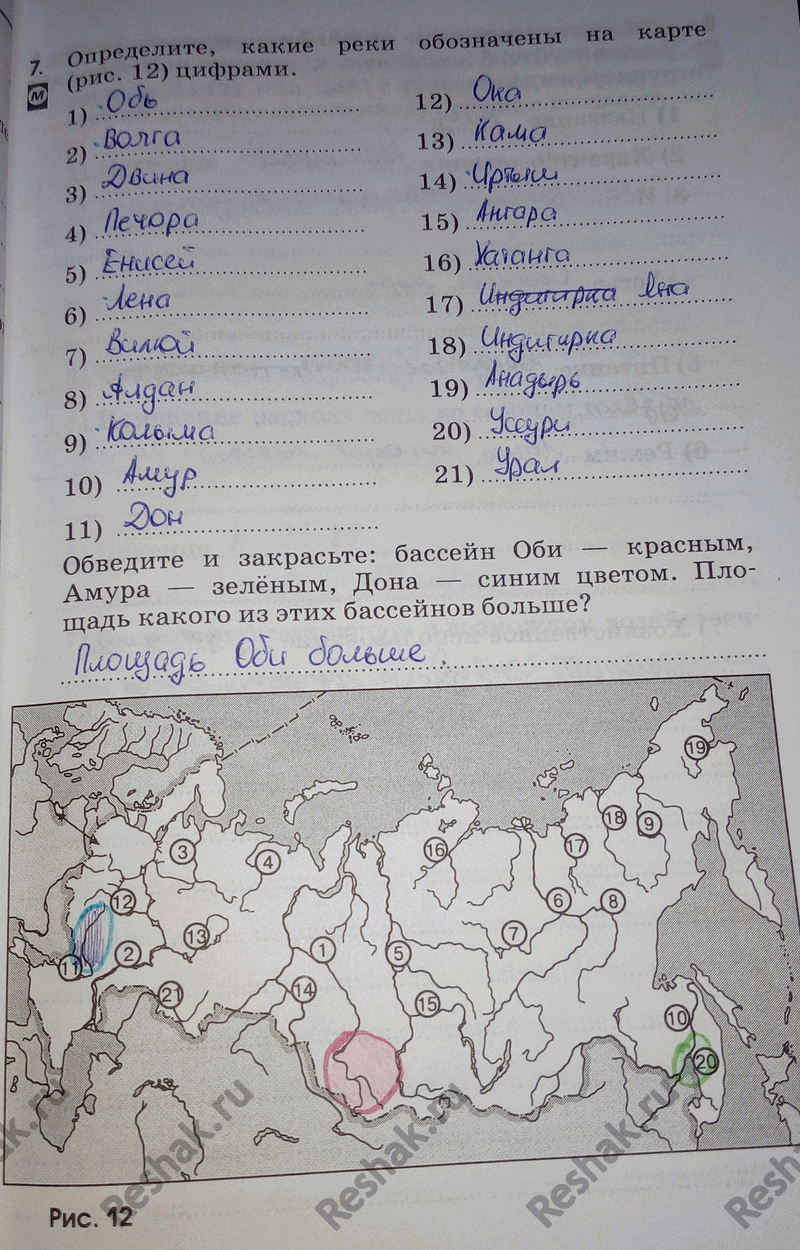 7. Определите, какие реки обозначены на карте
(рис. 12) цифрами.
М
1) Обь
2) Волга
3) Двина
4) Печора
5) Енисей
6) Лена
7) Вилюй
8) Алдан
9) Колыма
10) Амур
11) Дон
12) Ока
13) Кама
14) Иртыш
15) Ангара
16) Хатанга
17) Индигирка Яна
18) Индигирка
19) Анадырь
20) Уссури
21) Урал
Обведите и закрасьте: бассейн Оби — красным,
Амура — зелёным, Дона — синим цветом. Пло-
щадь какого из этих бассейнов больше?
Площадь Оби больше.
19
18
9
3
4
16
17
12
6
8
13
7
2
1
5
11
21
14
15
10
20
Reshak.ru
Reshak.ru
Reshak.ru
Reshak.ru
Рис. 12